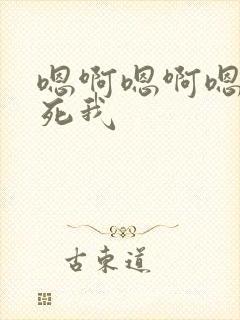 嗯啊嗯啊嗯
死我
古東道